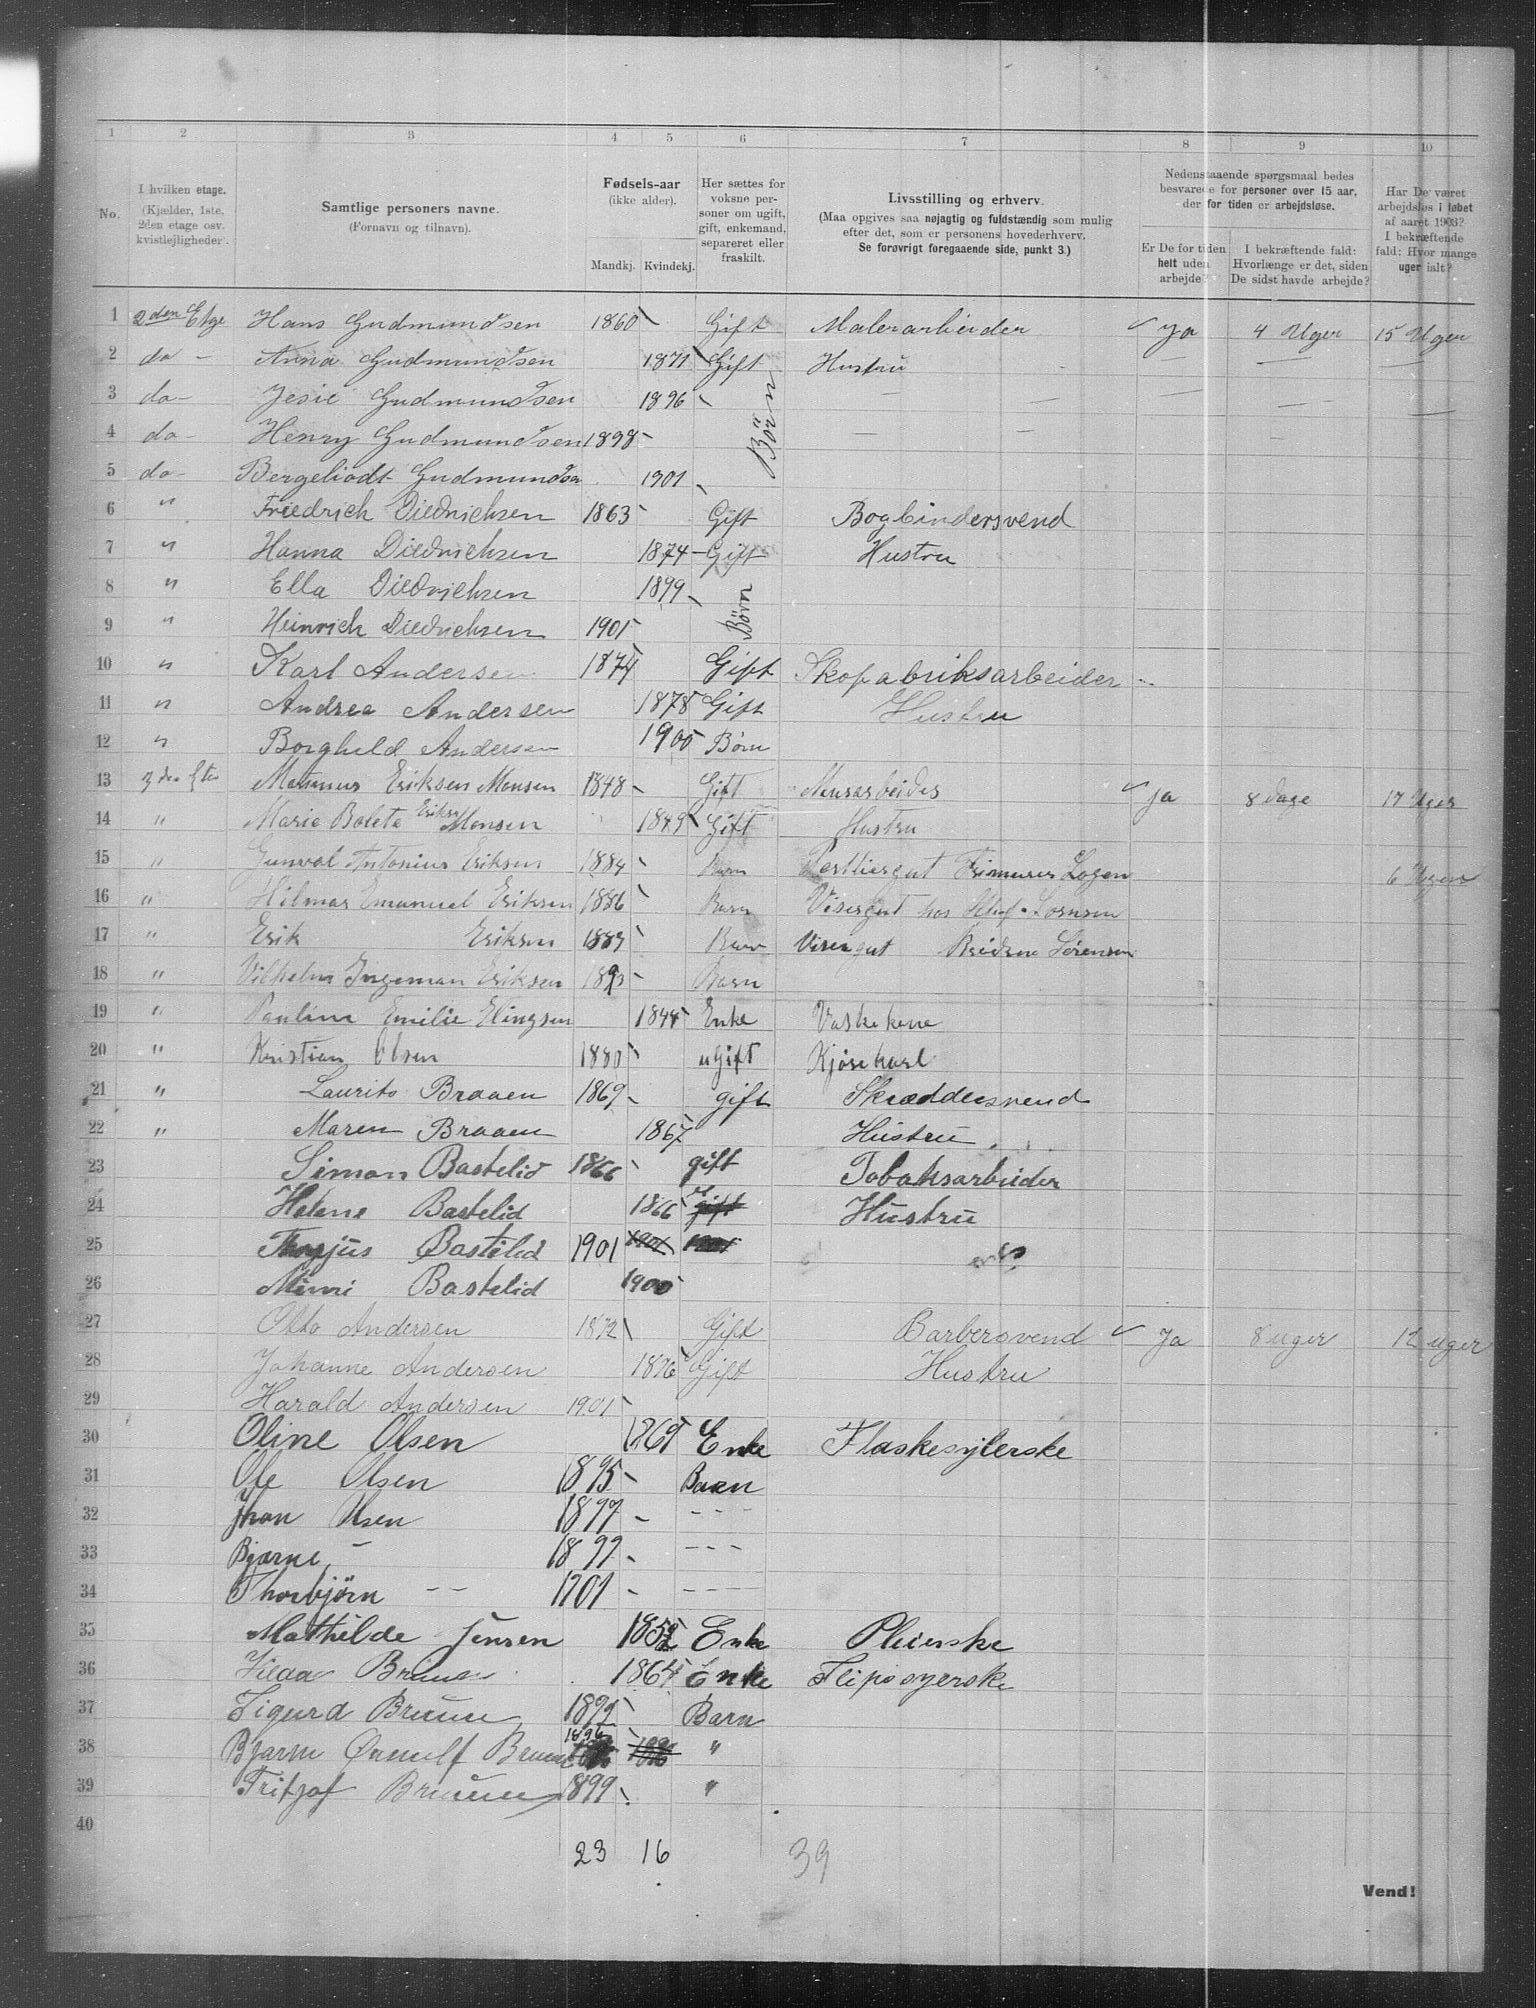 1 2 3 4 5 6 7 8 9 10
No.
I hvilken etage.
(Kjælder, 1ste, 2den etage osv. kvistlejligheder).
Samtlige personers navne.
(Fornavn og tilnavn).
Fødsels-aar
(ikke alder).
Mandkj. Kvindekj.
Her sættes for voksne personer om ugift, gift, enkemand, separeret eller fraskilt.
Livsstilling og erhverv.
(Maa opgives saa nøjagtig og fuldstændig som mulig efter det, som er personens hovederhverv.
Se forøvrigt foregaaende side, punkt 3.)
Nedenstaaende spørgsmaal bedes besvarede for personer over 15 aar, der for tiden er arbejdsløse.
Er De for tiden helt uden arbejde?
I bekræftende fald: Hvorlænge er det, siden De sidst havde arbejde?
Har De været arbejdsløs i løbet af aaret 1903? I bekræftende fald: Hvor mange uger ialt?
1 2den Etge Hans Gudmundsen 1860 Gift Malerarbeider Ja 4 Uger 15 Uger
2 do - Anna Gudmundsen 1871 Gift Hustru — —
3 do - Jesie Gudmundsen 1896 Børn — — — —
4 do - Henry Gudmundsen 1898 — — —
5 do - Bergeliodt Gudmundsen 1901
6 " Friedrich Diedrichsen 1863 Gift Bogbindersvend
7 " Hanna Diedrichsen 1874 Gift Hustru
8 " Ella Diedrichsen 1899 Børn
9 " Heinrich Diedrichsen 1901
10 " Karl Andersen 1874 Gift Skofabriksarbeider
11 " Andrea Andersen 1878 Gift Hustru
12 " Borghild Andersen 1900 Børn
13 3die Etg Eriksen Monsen 1848 Gift Murarbeider Ja 8 Dage 17 Uger
14 " Marie Bolete Eriksen Monsen 1849 Gift Hustru
15 " Gunval Antonius Eriksen 1884 Barn Frimurer Logen 6 Uger
16 " Hilmar Emanuel Eriksen 1886 Barn Visergut hos
17 " Erik Eriksen 1889 Barn Visergut Sørensen
18 " Vilhelm Ingeman Eriksen 1893 Barn
19 " Pauline Emilie Elingsen 1844 Enke Vaskekone
20 " Kristian Olsen 1880 ugift Kjørekarl
21 " Laurits Braaen 1869 gift Skræddersvend
22 " Maren Braaen 1867 Hustru
23 Simon Bastelid 1866 gift Tobaksarbeider
24 Helene Bastelid 1866 Hustru
25 Bastelid 1901
26 Mimi Bastelid 1900
27 Otto Andersen 1872 Gift Barbersvend Ja 8 uger 12 uger
28 Johanne Andersen 1876 Gift Hustru
29 Harald Andersen 1901
30 Oline Olsen 1869 Enke Flaskesylerske
31 Ole Olsen 1895 Barn
32 Jhon Olsen 1897 - - -
33 Bjarne - 1899 - - -
34 Thorbjørn - - 1901 - - -
35 Mathilde Jensen 1852 Enke Pleierske
36 Hilda Bruun 1864 Enke Flipsyerske
37 Sigurd Bruun 1892 Barn
38 Bjarne Ørnulf Bruun 1896 "
39 Fritjof Bruun 1899 "
40
23 16 39
Vend!